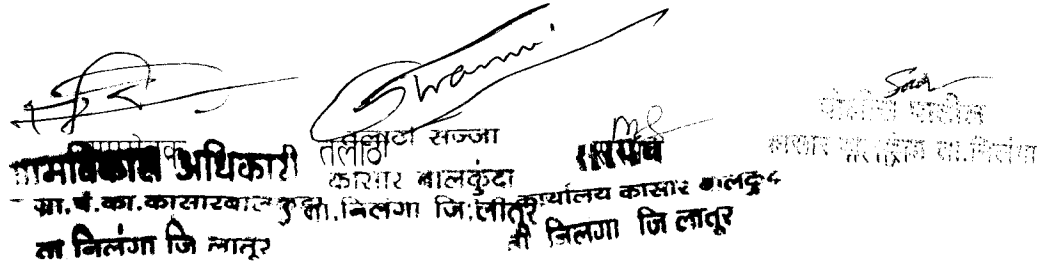 ग्रामविकास अधिकारी
ग्रा.पं.का.कासारबालकुंदा
ता निलंगा जि लातूर
तलाठी सज्जा
कासार बालकुंदा
ता.निलंगा जि.लातूर
सरपंच
कार्यालय कासार बालकुंदा
ता निलंगा जि लातूर
पोलीस पाटील
कासार बालकुंदा ता.निलंगा